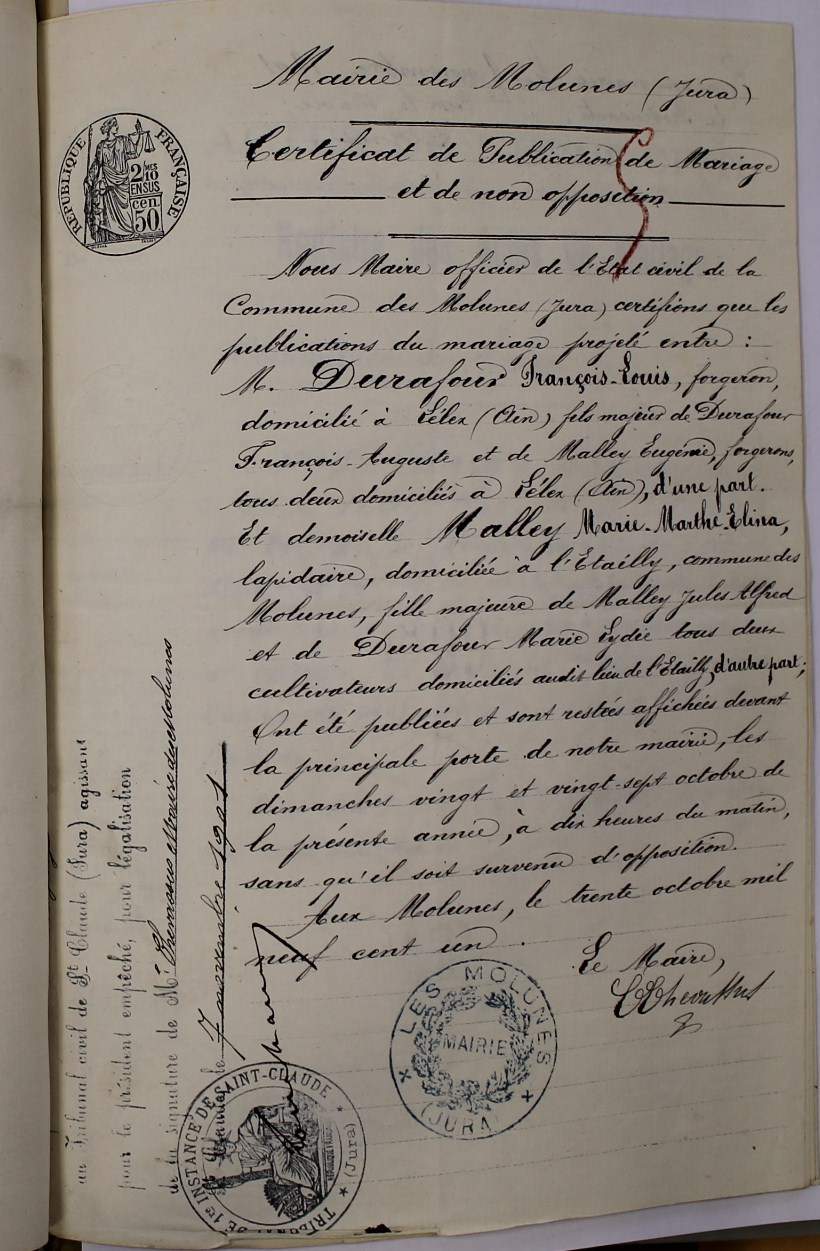 Mairie des Molunes (Jura)
Certificat de Publication de Mariage
et de non opposition
RÉPUBLIQUE FRANÇAISE
2/10
EN SUS
50
cen.
Nous Maire officier de l'Etat civil de la
Commune des Molunes (Jura) certifions que les
publications du mariage projeté entre :
M. Durafour François-Louis, forgeron,
domicilié à Lélex (Ain) fils majeur de Durafour
François-Auguste et de Malley Eugénie, forgerons,
tous deux domiciliés à Lélex (Ain), d'une part.
Et demoiselle Malley Marie-Marthe-Elina,
lapidaire, domiciliée à l'Etailly, commune des
Molunes, fille majeure de Malley Jules Alfred
et de Durafour Marie Lydie tous deux
cultivateurs domiciliés audit lieu de l'Etailly, d'autre part;
Ont été publiées et sont restées affichées devant
la principale porte de notre mairie, les
dimanches vingt et vingt-sept octobre de
la présente année, à dix heures du matin,
sans qu'il soit survenu d'opposition.
Aux Molunes, le trente octobre mil
neuf cent un.
Le Maire,
LES MOLUNES
MAIRIE
(JURA)
au Tribunal civil de St Claude (Jura) agissant
pour le président empêché, pour légalisation
de la signature de Mr Maire des Molunes
St Claude, le 7 novembre 1901
TRIBUNAL DE 1re INSTANCE DE SAINT-CLAUDE
(Jura)